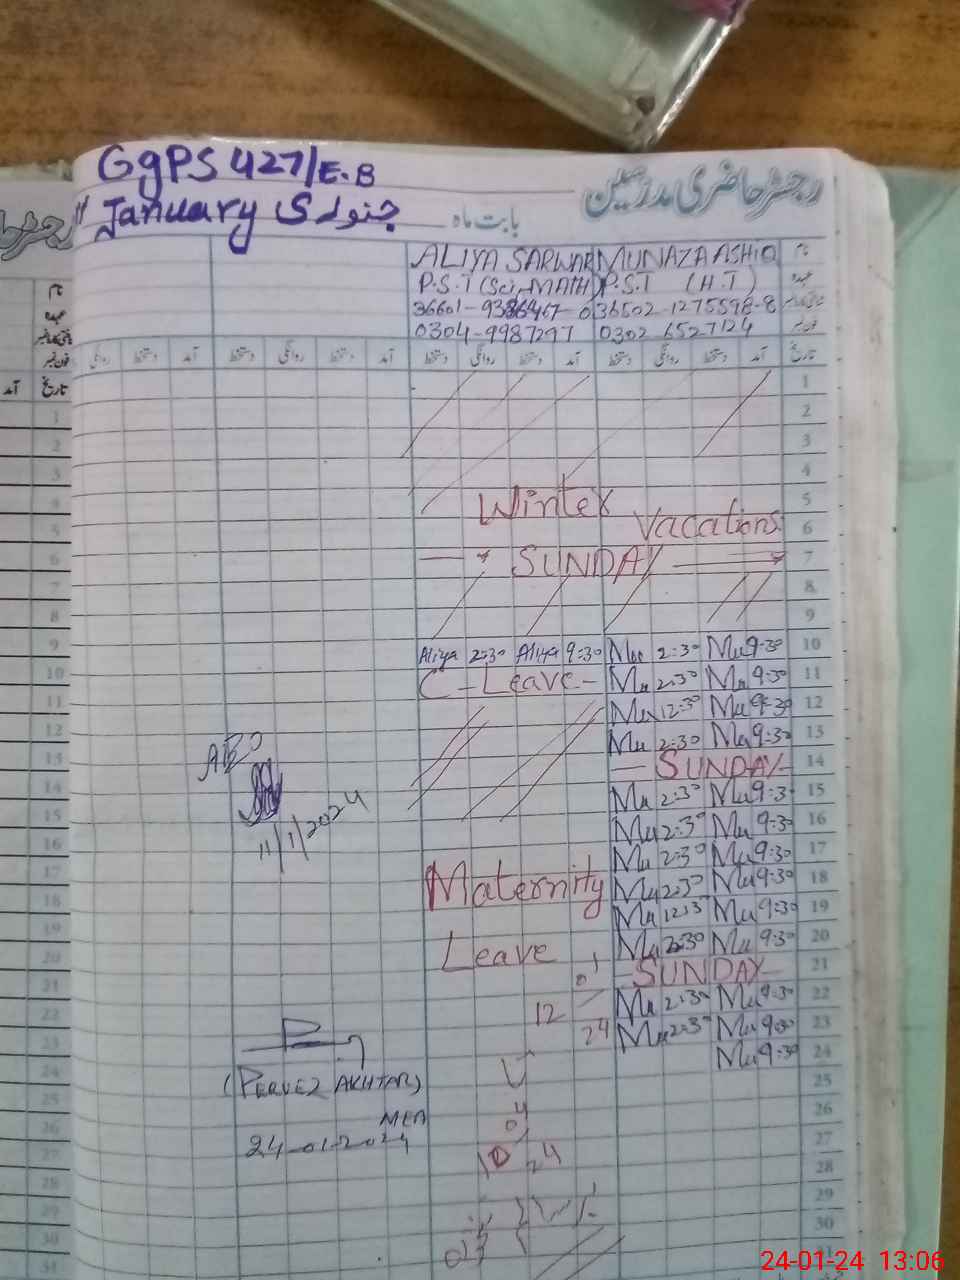 GgPS 427/E.B
رجسٹر حاضری مدرسین
January جنوری بابت ماہ
ALIYA SARWAR MUNAZA ASHIQ نام
P.S.T (Sci, MATH) P.S.T (H.T) عہدہ
36502-1275598-8
0304-9987297 0302 6527124 فون نمبر
روانگی دستخط آمد دستخط روانگی دستخط آمد دستخط روانگی دستخط آمد تاریخ
1
2
3
4
Winter 5
Vacations 6
SUNDAY 7
8
9
Aliya 2:30 Aliya 9:30 Mu 2:30 Mu 9:30 10
C-Leave- Mu 2:30 Mu 9:30 11
Mu 12:30 Mu 9:30 12
Mu 2:30 Mu 9:30 13
SUNDAY 14
Mu 2:30 Mu 9:30 15
Mu 2:30 Mu 9:30 16
Mu 2:30 Mu 9:30 17
Maternity Mu 2:30 Mu 9:30 18
Mu 12:30 Mu 9:30 19
Leave Mu 2:30 Mu 9:30 20
SUNDAY 21
Mu 2:30 Mu 9:30 22
Mu 2:30 Mu 9:30 23
Mu 9:30 24
25
26
27
28
29
30
31
12 01 24
10 04 24
AEO
11/1/2024
(PERVEZ AKHTAR)
MEA
24-01-2024
24-01-24 13:06